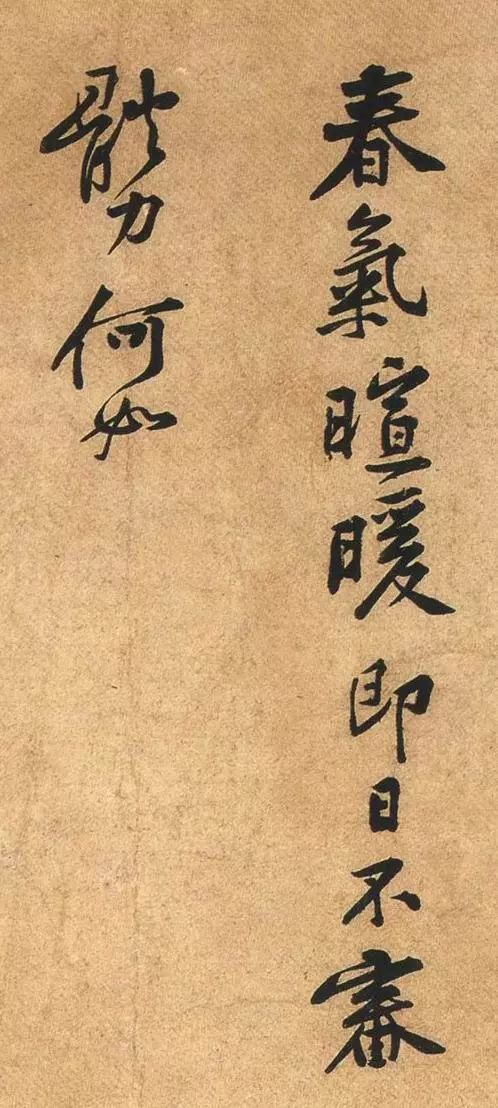 春氣暄暖即日不審
體力何如